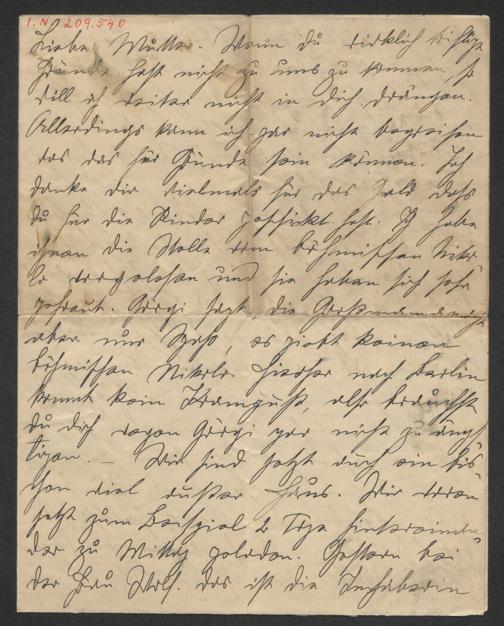 I. N. 209.540
Liebe Mutter. Wenn du wirklich wichtige
Gründe hast nicht zu uns zu kommen, so
will ich weiter nicht in dich drängen.
Allerdings kann ich gar nicht begreifen
was das für Gründe sein können. Ich
danke dir vielmals für das Geld daß
du für die Kinder geschickt hast. Ich habe
ihnen die Stelle vom böhmischen Niko
lo vorgelesen und sie haben sich sehr
gefreut. Görgi sagt, die Großmama macht
aber nur Spaß, es giebt keinen
böhmischen Nikolo. Hierher nach Berlin
kommt kein Krampus, also brauchst
du dich wegen Görgi gar nicht zu ängs
tigen. — Wir sind jetzt durch ein bis
chen viel außer Haus. Wir waren
jetzt zum Beispiel 2 Tage hintereinan-
der zu Mittag geladen. Gestern bei
der Frau Wolf. das ist die Inhaberin